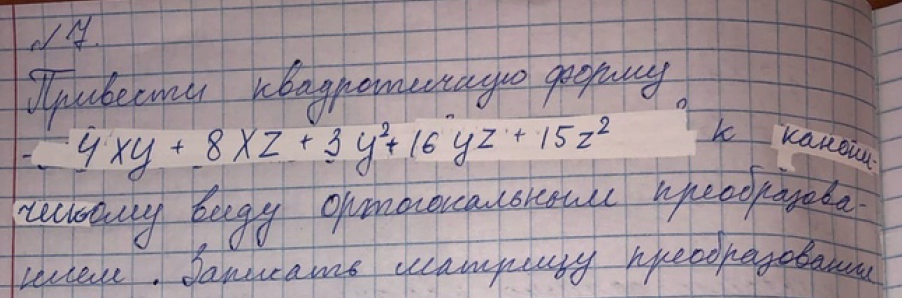 № 7.
Привести квадратичную форму
- 4xy + 8xz + 3y² + 16yz + 15z² к канони-
ческому виду ортогональным преобразова-
нием. Записать матрицу преобразования